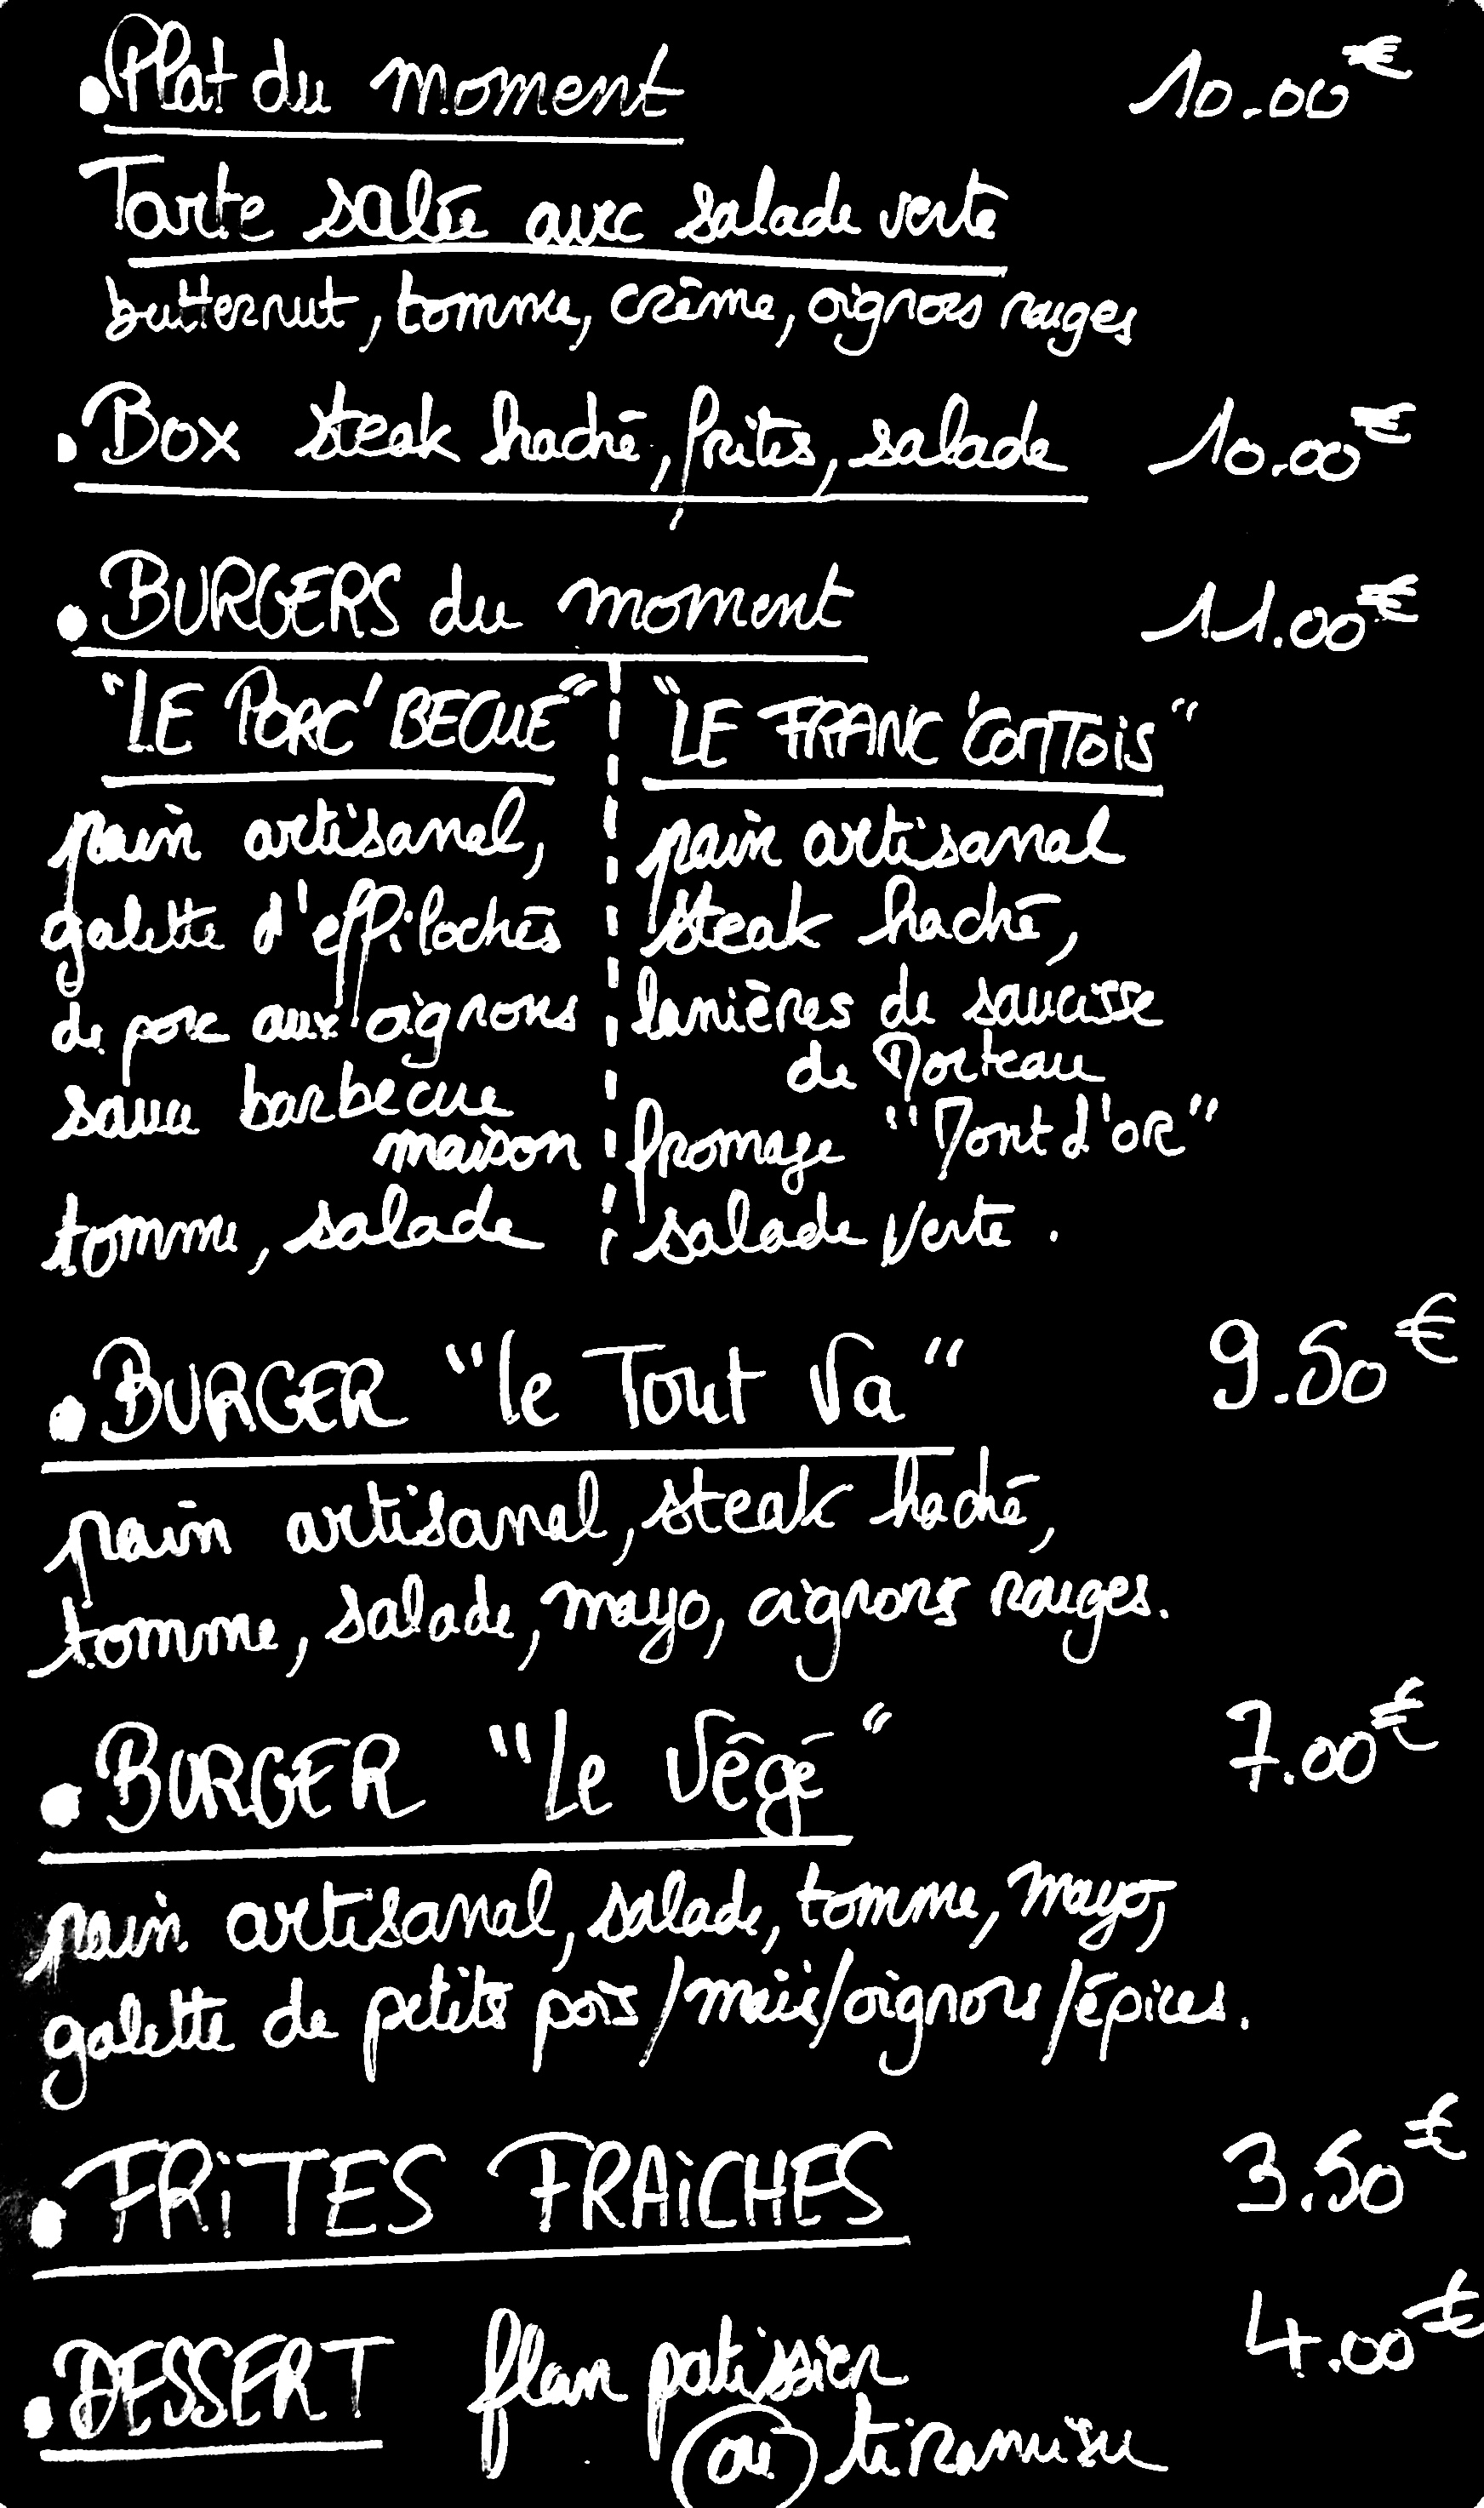 • Plat du moment 10.00€
Tarte salée avec salade verte
butternut, tomme, crème, oignons rouges
• Box steak haché, frites, salade 10.00€
• BURGERS du moment 11.00€
"LE PORC'BECUE"
pain artisanal,
galette d'effilochés
de porc aux oignons
sauce barbecue
maison
tomme, salade
"LE FRANC'COMTOIS"
pain artisanal
steak haché,
lanières de saucisse
de Morteau
fromage "Mont d'OR"
salade verte.
• BURGER "le Tout Va" 9.50€
pain artisanal, steak haché,
tomme, salade, mayo, oignons rouges.
• BURGER "Le Végé" 7.00€
pain artisanal, salade, tomme, mayo,
galette de petits pois/maïs/oignons/épices.
• FRITES FRAICHES 3.50€
• DESSERT flan patissier 4.00€
ou tiramisu